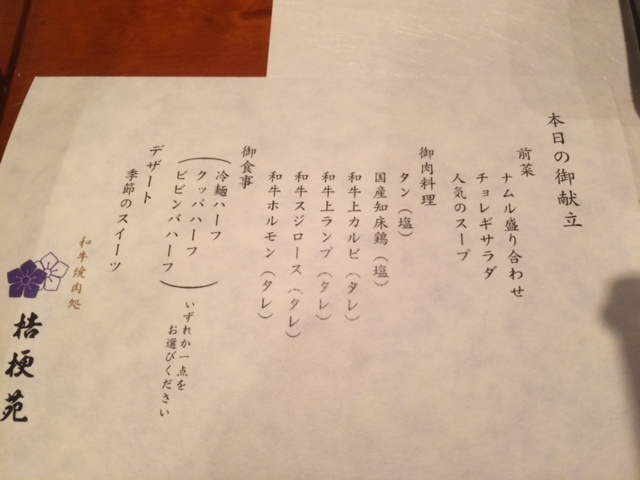 本日の御献立
前菜
ナムル盛り合わせ
チョレギサラダ
人気のスープ
御肉料理
タン（塩）
国産知床鶏（塩）
和牛上カルビ（タレ）
和牛上ランプ（タレ）
和牛スジロース（タレ）
和牛ホルモン（タレ）
御食事
冷麺ハーフ
クッパハーフ
ビビンバハーフ
いずれか一点を
お選びください
デザート
季節のスイーツ
和牛焼肉処
桔梗苑